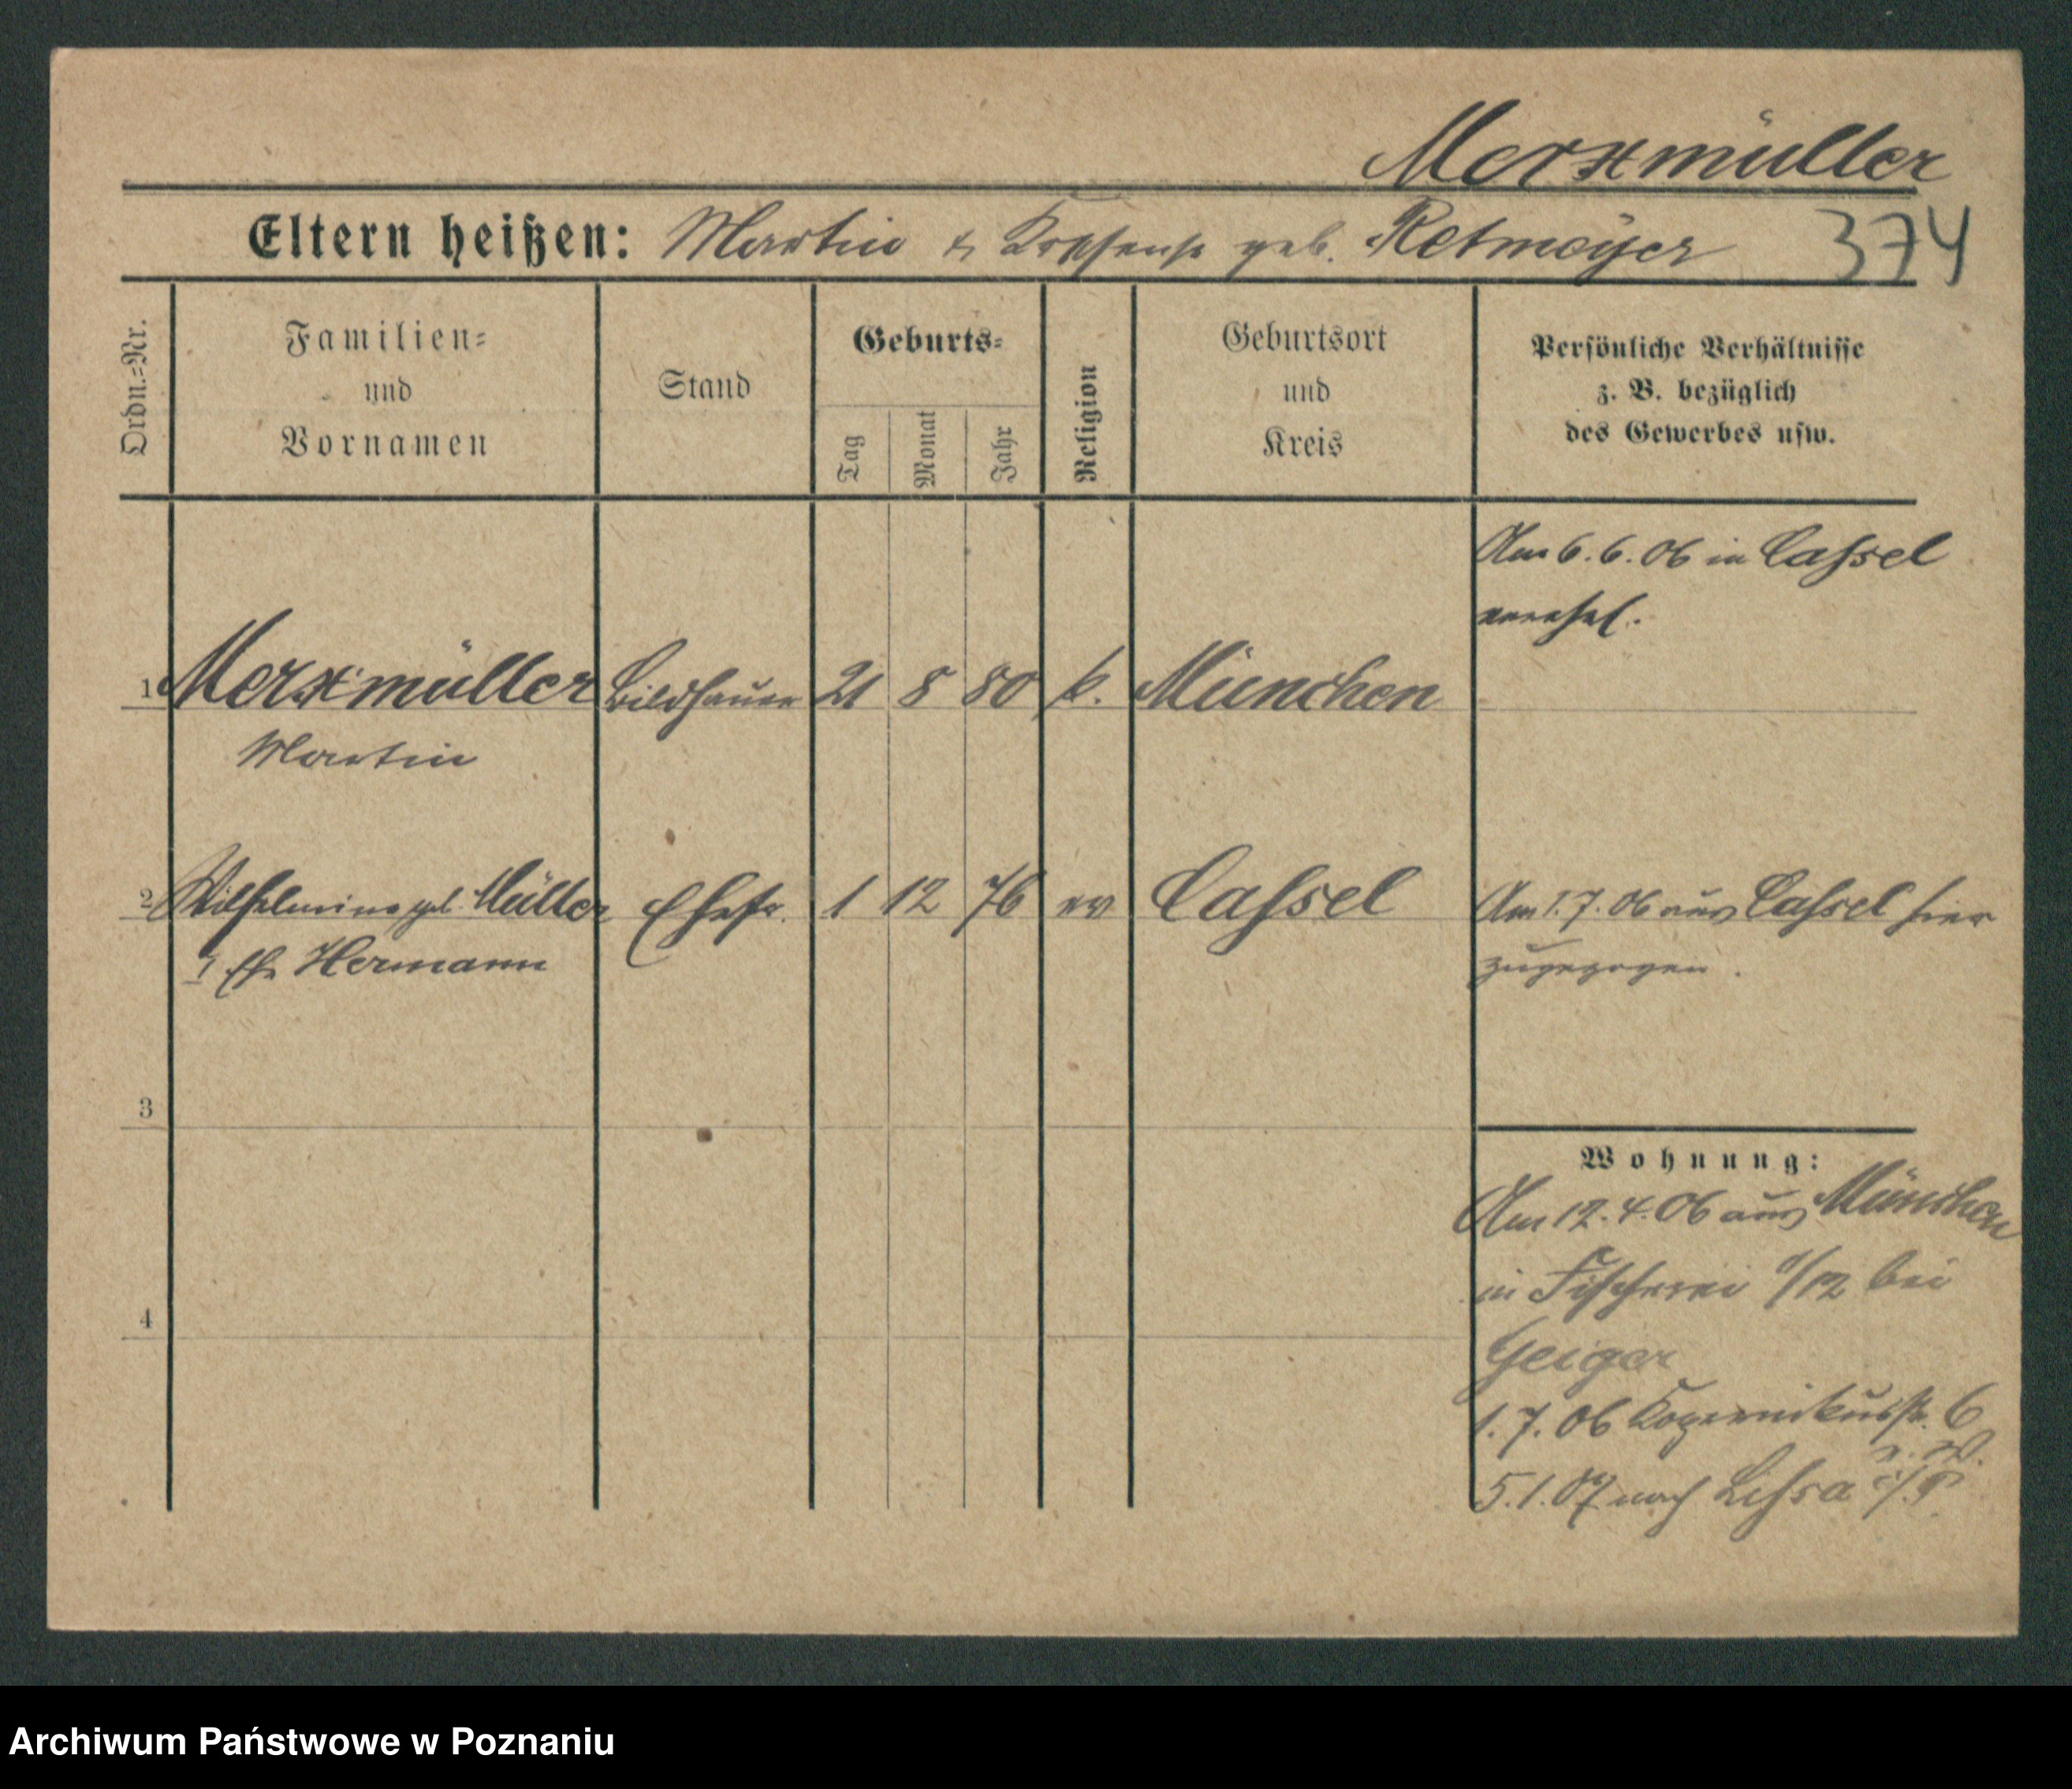 Merxmüller
Eltern heißen: Martin & geb. Retmeÿer 374
Ordn.-Nr.
Familien-
und
Vornamen
Stand
Geburts-
Tag
Monat
Jahr
Religion
Geburtsort
und
Kreis
Persönliche Verhältnisse
z. B. bezüglich
des Gewerbes usw.
Am 6.6.06 in Cassel
verehel.
1 Merxmüller Bildhauer 21 8 80 k. München
Martin
2 Wilhelmine geb. Müller Ehefr. 1 12 76 ev Cassel Am 1.7.06 aus Cassel hier
I Ehe Hermann zugezogen.
3
Wohnung:
Am 12.4.06 aus München
in Fischerei 11/12 bei
4
Geiger
1.7.06 Kopernikusstr. 6
5.1.07 nach Lissa i/P.